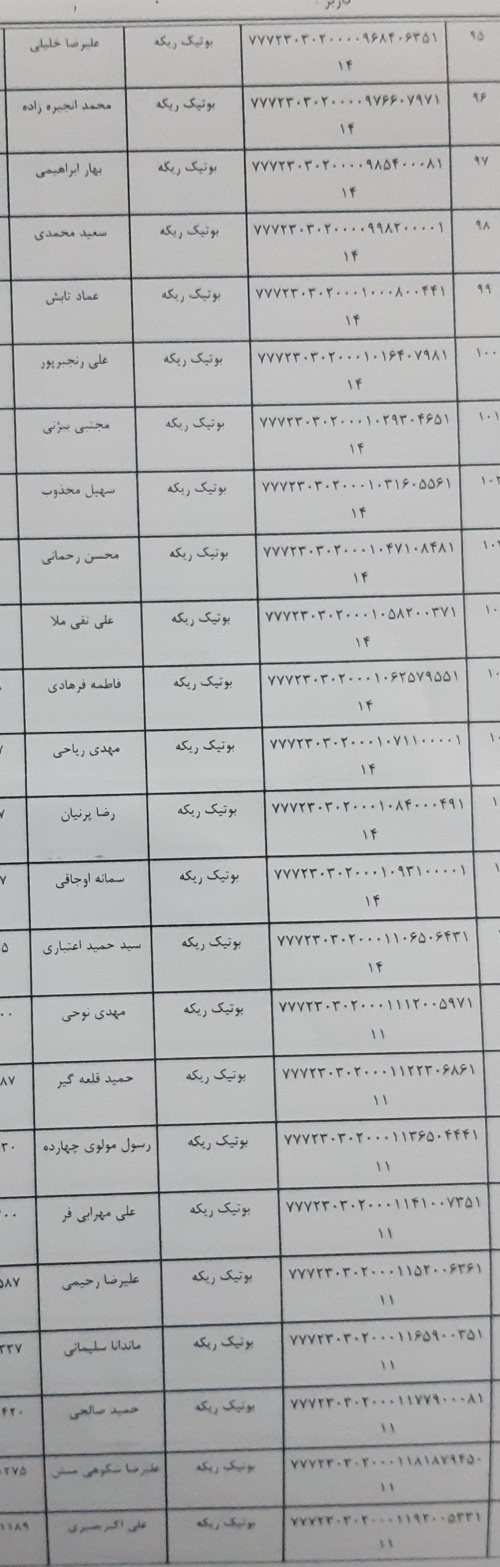 ۹۵ ۷۷۷۲۳۰۳۰۲۰۰۰۰۹۶۸۴۰۶۳۵۱ بوتیک ریکه علیرضا خلیلی
۱۴
۹۶ ۷۷۷۲۳۰۳۰۲۰۰۰۰۹۷۶۶۰۷۹۷۱ بوتیک ریکه محمد انجیره زاده
۱۴
۹۷ ۷۷۷۲۳۰۳۰۲۰۰۰۰۹۸۵۴۰۰۰۸۱ بوتیک ریکه بهار ابراهیمی
۱۴
۹۸ ۷۷۷۲۳۰۳۰۲۰۰۰۰۹۹۸۲۰۰۰۰۱ بوتیک ریکه سعید محمدی
۱۴
۹۹ ۷۷۷۲۳۰۳۰۲۰۰۰۱۰۰۰۸۰۰۴۴۱ بوتیک ریکه عماد تابش
۱۴
۱۰۰ ۷۷۷۲۳۰۳۰۲۰۰۰۱۰۱۶۴۰۷۹۸۱ بوتیک ریکه علی رنجبرپور
۱۴
۱۰۱ ۷۷۷۲۳۰۳۰۲۰۰۰۱۰۲۹۳۰۴۶۵۱ بوتیک ریکه مجتبی بیژنی
۱۴
۷۷۷۲۳۰۳۰۲۰۰۰۱۰۳۱۶۰۵۵۶۱ بوتیک ریکه سهیل مجذوب
۱۴
۷۷۷۲۳۰۳۰۲۰۰۰۱۰۴۷۱۰۸۴۸۱ بوتیک ریکه محسن رحمانی
۱۴
۷۷۷۲۳۰۳۰۲۰۰۰۱۰۵۸۲۰۰۳۷۱ بوتیک ریکه علی نقی ملا
۱۴
۷۷۷۲۳۰۳۰۲۰۰۰۱۰۶۲۵۷۹۵۵۱ بوتیک ریکه فاطمه فرهادی
۱۴
۷۷۷۲۳۰۳۰۲۰۰۰۱۰۷۱۱۰۰۰۰۱ بوتیک ریکه مهدی ریاحی
۱۴
۷۷۷۲۳۰۳۰۲۰۰۰۱۰۸۴۰۰۰۴۹۱ بوتیک ریکه رضا پرنیان
۱۴
۷۷۷۲۳۰۳۰۲۰۰۰۱۰۹۳۱۰۰۰۰۱ بوتیک ریکه سمانه اوجاقی
۱۴
۷۷۷۲۳۰۳۰۲۰۰۰۱۱۰۶۵۰۶۴۳۱ بوتیک ریکه سید حمید اعتباری
۱۴
۷۷۷۲۳۰۳۰۲۰۰۰۱۱۱۲۰۰۵۹۷۱ بوتیک ریکه مهدی نوحی
۱۱
۷۷۷۲۳۰۳۰۲۰۰۰۱۱۲۲۳۰۶۸۶۱ بوتیک ریکه حمید قلعه گیر
۱۱
۷۷۷۲۳۰۳۰۲۰۰۰۱۱۳۶۵۰۴۴۴۱ بوتیک ریکه رسول مولوی چهارده
۱۱
۷۷۷۲۳۰۳۰۲۰۰۰۱۱۴۱۰۰۷۳۵۱ بوتیک ریکه علی مهرابی فر
۱۱
۷۷۷۲۳۰۳۰۲۰۰۰۱۱۵۲۰۰۶۳۶۱ بوتیک ریکه علیرضا رحیمی
۱۱
۷۷۷۲۳۰۳۰۲۰۰۰۱۱۶۵۹۰۰۳۵۱ بوتیک ریکه ماندانا سلیمانی
۱۱
۷۷۷۲۳۰۳۰۲۰۰۰۱۱۷۷۹۰۰۰۸۱ بوتیک ریکه حمید صالحی
۱۱
۷۷۷۲۳۰۳۰۲۰۰۰۱۱۸۱۸۷۹۴۵۰ بوتیک ریکه علیرضا شکوهی منش
۱۱
۷۷۷۲۳۰۳۰۲۰۰۰۱۱۹۲۰۰۵۳۳۱ بوتیک ریکه علی اکبر بصیری
۱۱